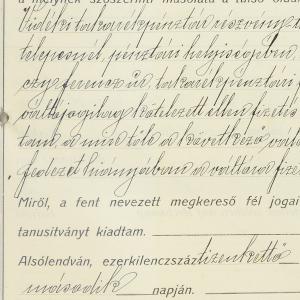 a melynek szószerinti másolata a túlsó olda
Vidéki takarékpénztár részvény t
telepesnél, pénztári helyiségében,
czy ferencz úr, takarékpénztári
váltójogilag kötelezett ellen fizetés
tam, a mire tőle a következő vála
fedezet hiányában a váltónál fizet
Miről, a fent nevezett megkereső fél jogai
tanusítványt kiadtam.
Alsólendván, ezerkilenczszáztizenkettő
második napján.